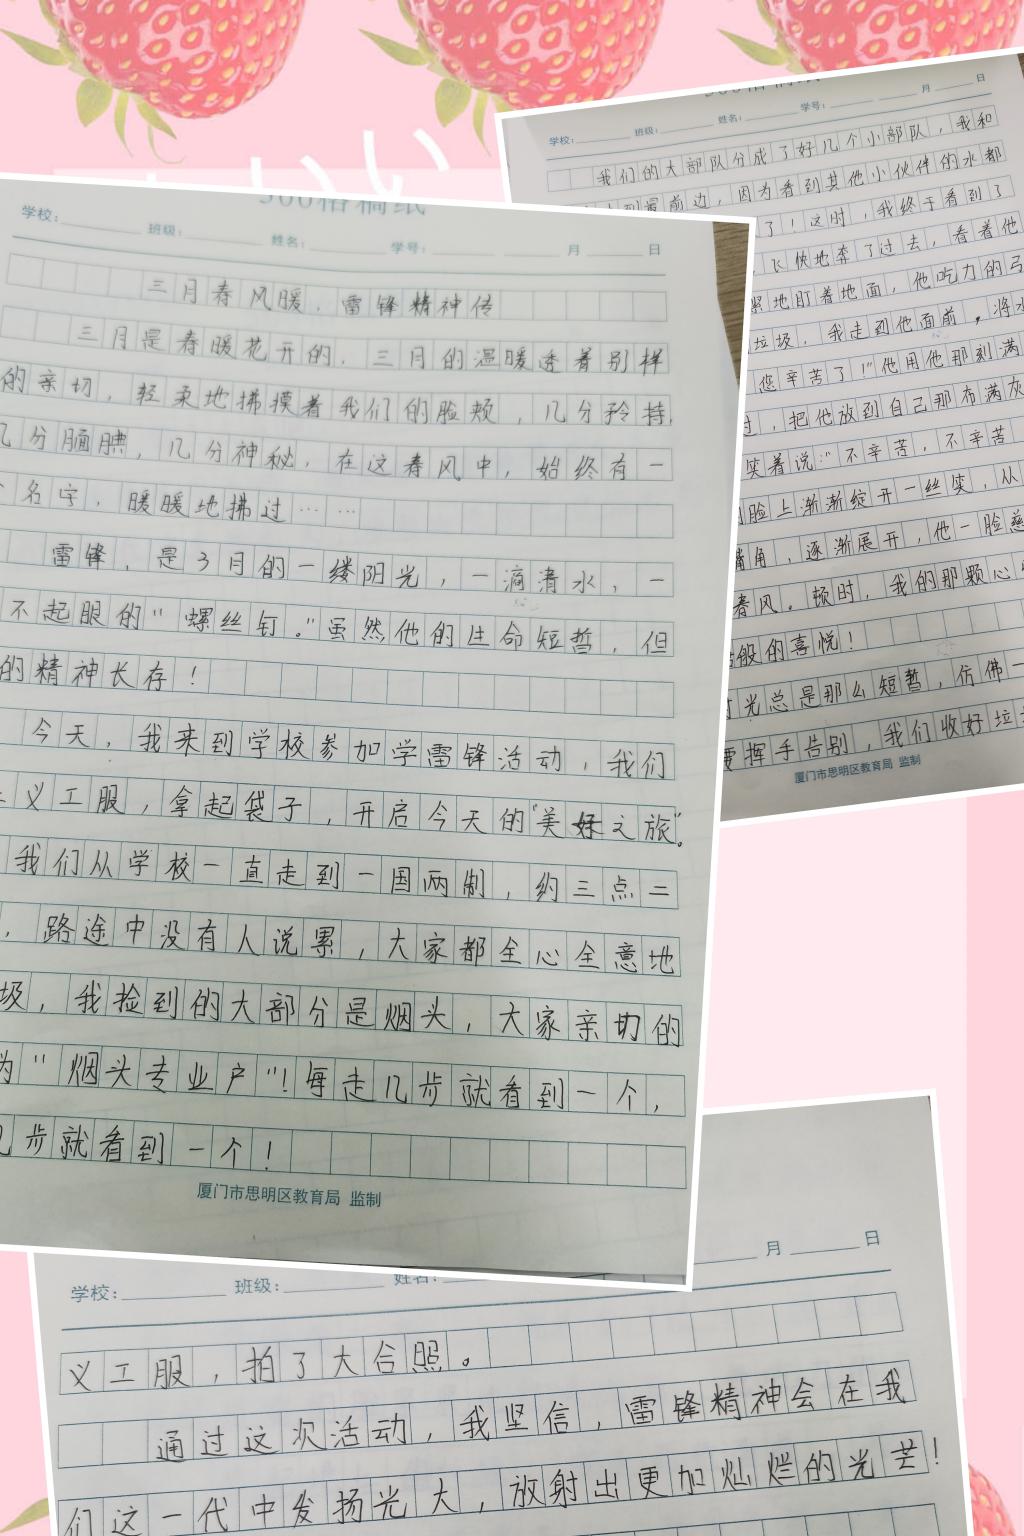 学校: 班级: 姓名: 学号: 月 日
三月春风暖，雷锋精神传
三月是春暖花开的，三月的温暖透着别样
的亲切，轻柔地拂摸着我们的脸颊，几分矜持，
几分腼腆，几分神秘，在这春风中，始终有一
名字，暖暖地拂过……
雷锋，是3月的一缕阳光，一滴清水，一
不起眼的"螺丝钉。"虽然他的生命短暂，但
的精神长存！
今天，我来到学校参加学雷锋活动，我们
义工服，拿起袋子，开启今天的"美好之旅"。
我们从学校一直走到一国两制，约三点二
，路途中没有人说累，大家都全心全意地
圾，我捡到的大部分是烟头，大家亲切的
为"烟头专业户"！每走几步就看到一个，
几步就看到一个！
厦门市思明区教育局 监制
学校: 班级: 姓名: 学号: 月 日
我们的大部队分成了好几个小部队，我和
到最前边，因为看到其他小伙伴的水都
了！这时，我终于看到了
，飞快地奔了过去，看着他
紧地盯着地面，他吃力的弓
垃圾，我走到他面前，将水
您辛苦了！"他用他那刻满
，把他放到自己那布满灰
笑着说："不辛苦，不辛苦
脸上渐渐绽开一丝笑，从
嘴角，逐渐展开，他一脸慈
春风。顿时，我的那颗心
般的喜悦！
时光总是那么短暂，仿佛一
要挥手告别，我们收好垃
厦门市思明区教育局 监制
学校: 班级: 姓名: 月 日
义工服，拍了大合照。
通过这次活动，我坚信，雷锋精神会在我
们这一代中发扬光大，放射出更加灿烂的光芒！